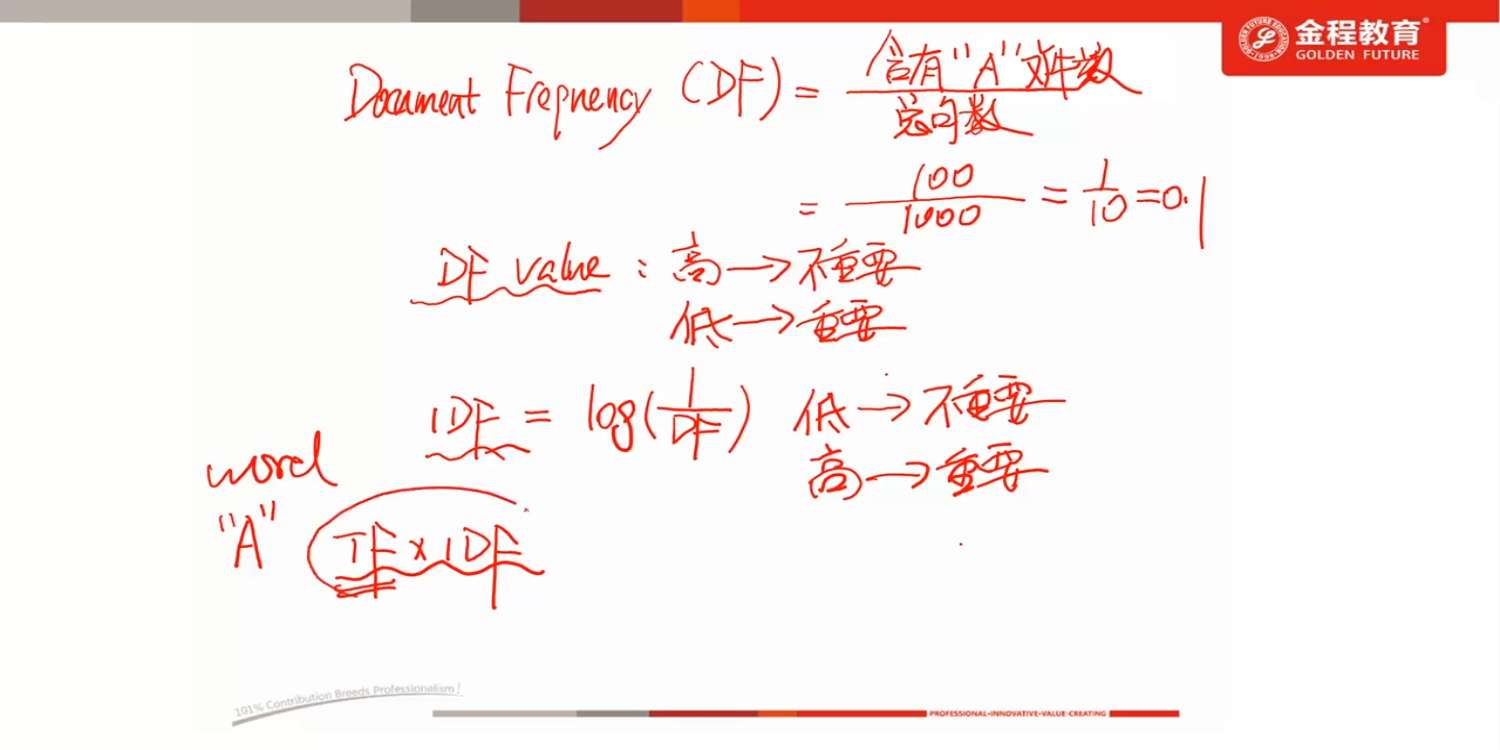 金程教育
GOLDEN FUTURE
Document Frequency (DF) = 含有"A"文件数 / 总句数
= 100 / 1000 = 1/10 = 0.1
DF value : 高 → 不重要
低 → 重要
IDF = log(1/DF) 低 → 不重要
高 → 重要
word
"A" TF × IDF
101% Contribution Breeds Professionalism!
PROFESSIONAL•INNOVATIVE•VALUE-CREATING